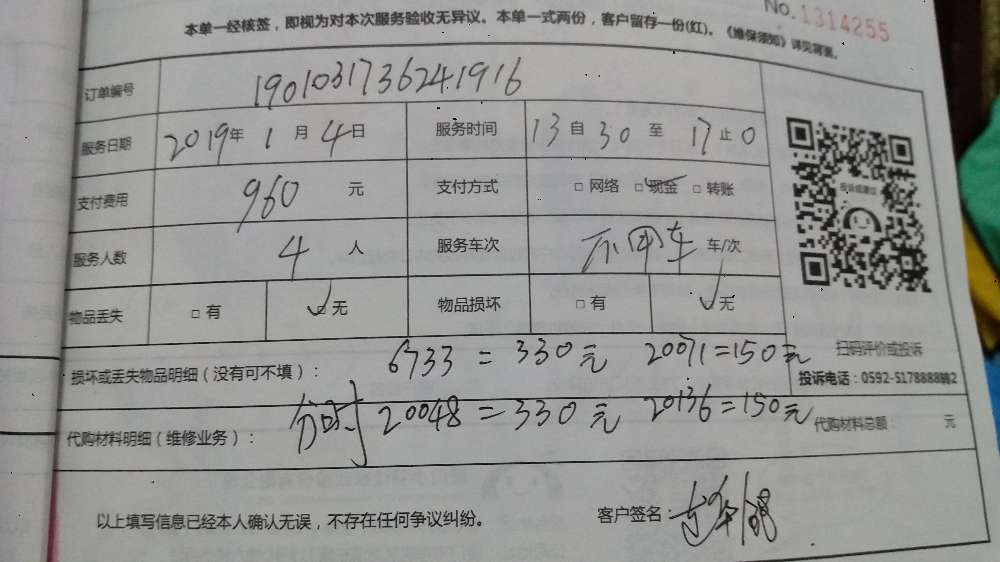 本单一经核签，即视为对本次服务验收无异议。本单一式两份，客户留存一份(红)。《维保须知》详见背面。
No.1314255
订单编号 1901031736241916
服务日期 2019年 1月 4日 服务时间 13自30至17止0
支付费用 960 元 支付方式 □网络 □现金 □转账
服务人数 4 人 服务车次 不用车 车/次
物品丢失 □有 □无 物品损坏 □有 无
投诉或建议
扫码评价或投诉
投诉电话：0592-5178888转2
损坏或丢失物品明细（没有可不填）： 6733=330元 20071=150元
代购材料明细（维修业务）： 分时 20048=330元 20136=150元 代购材料总额： 元
以上填写信息已经本人确认无误，不存在任何争议纠纷。 客户签名：